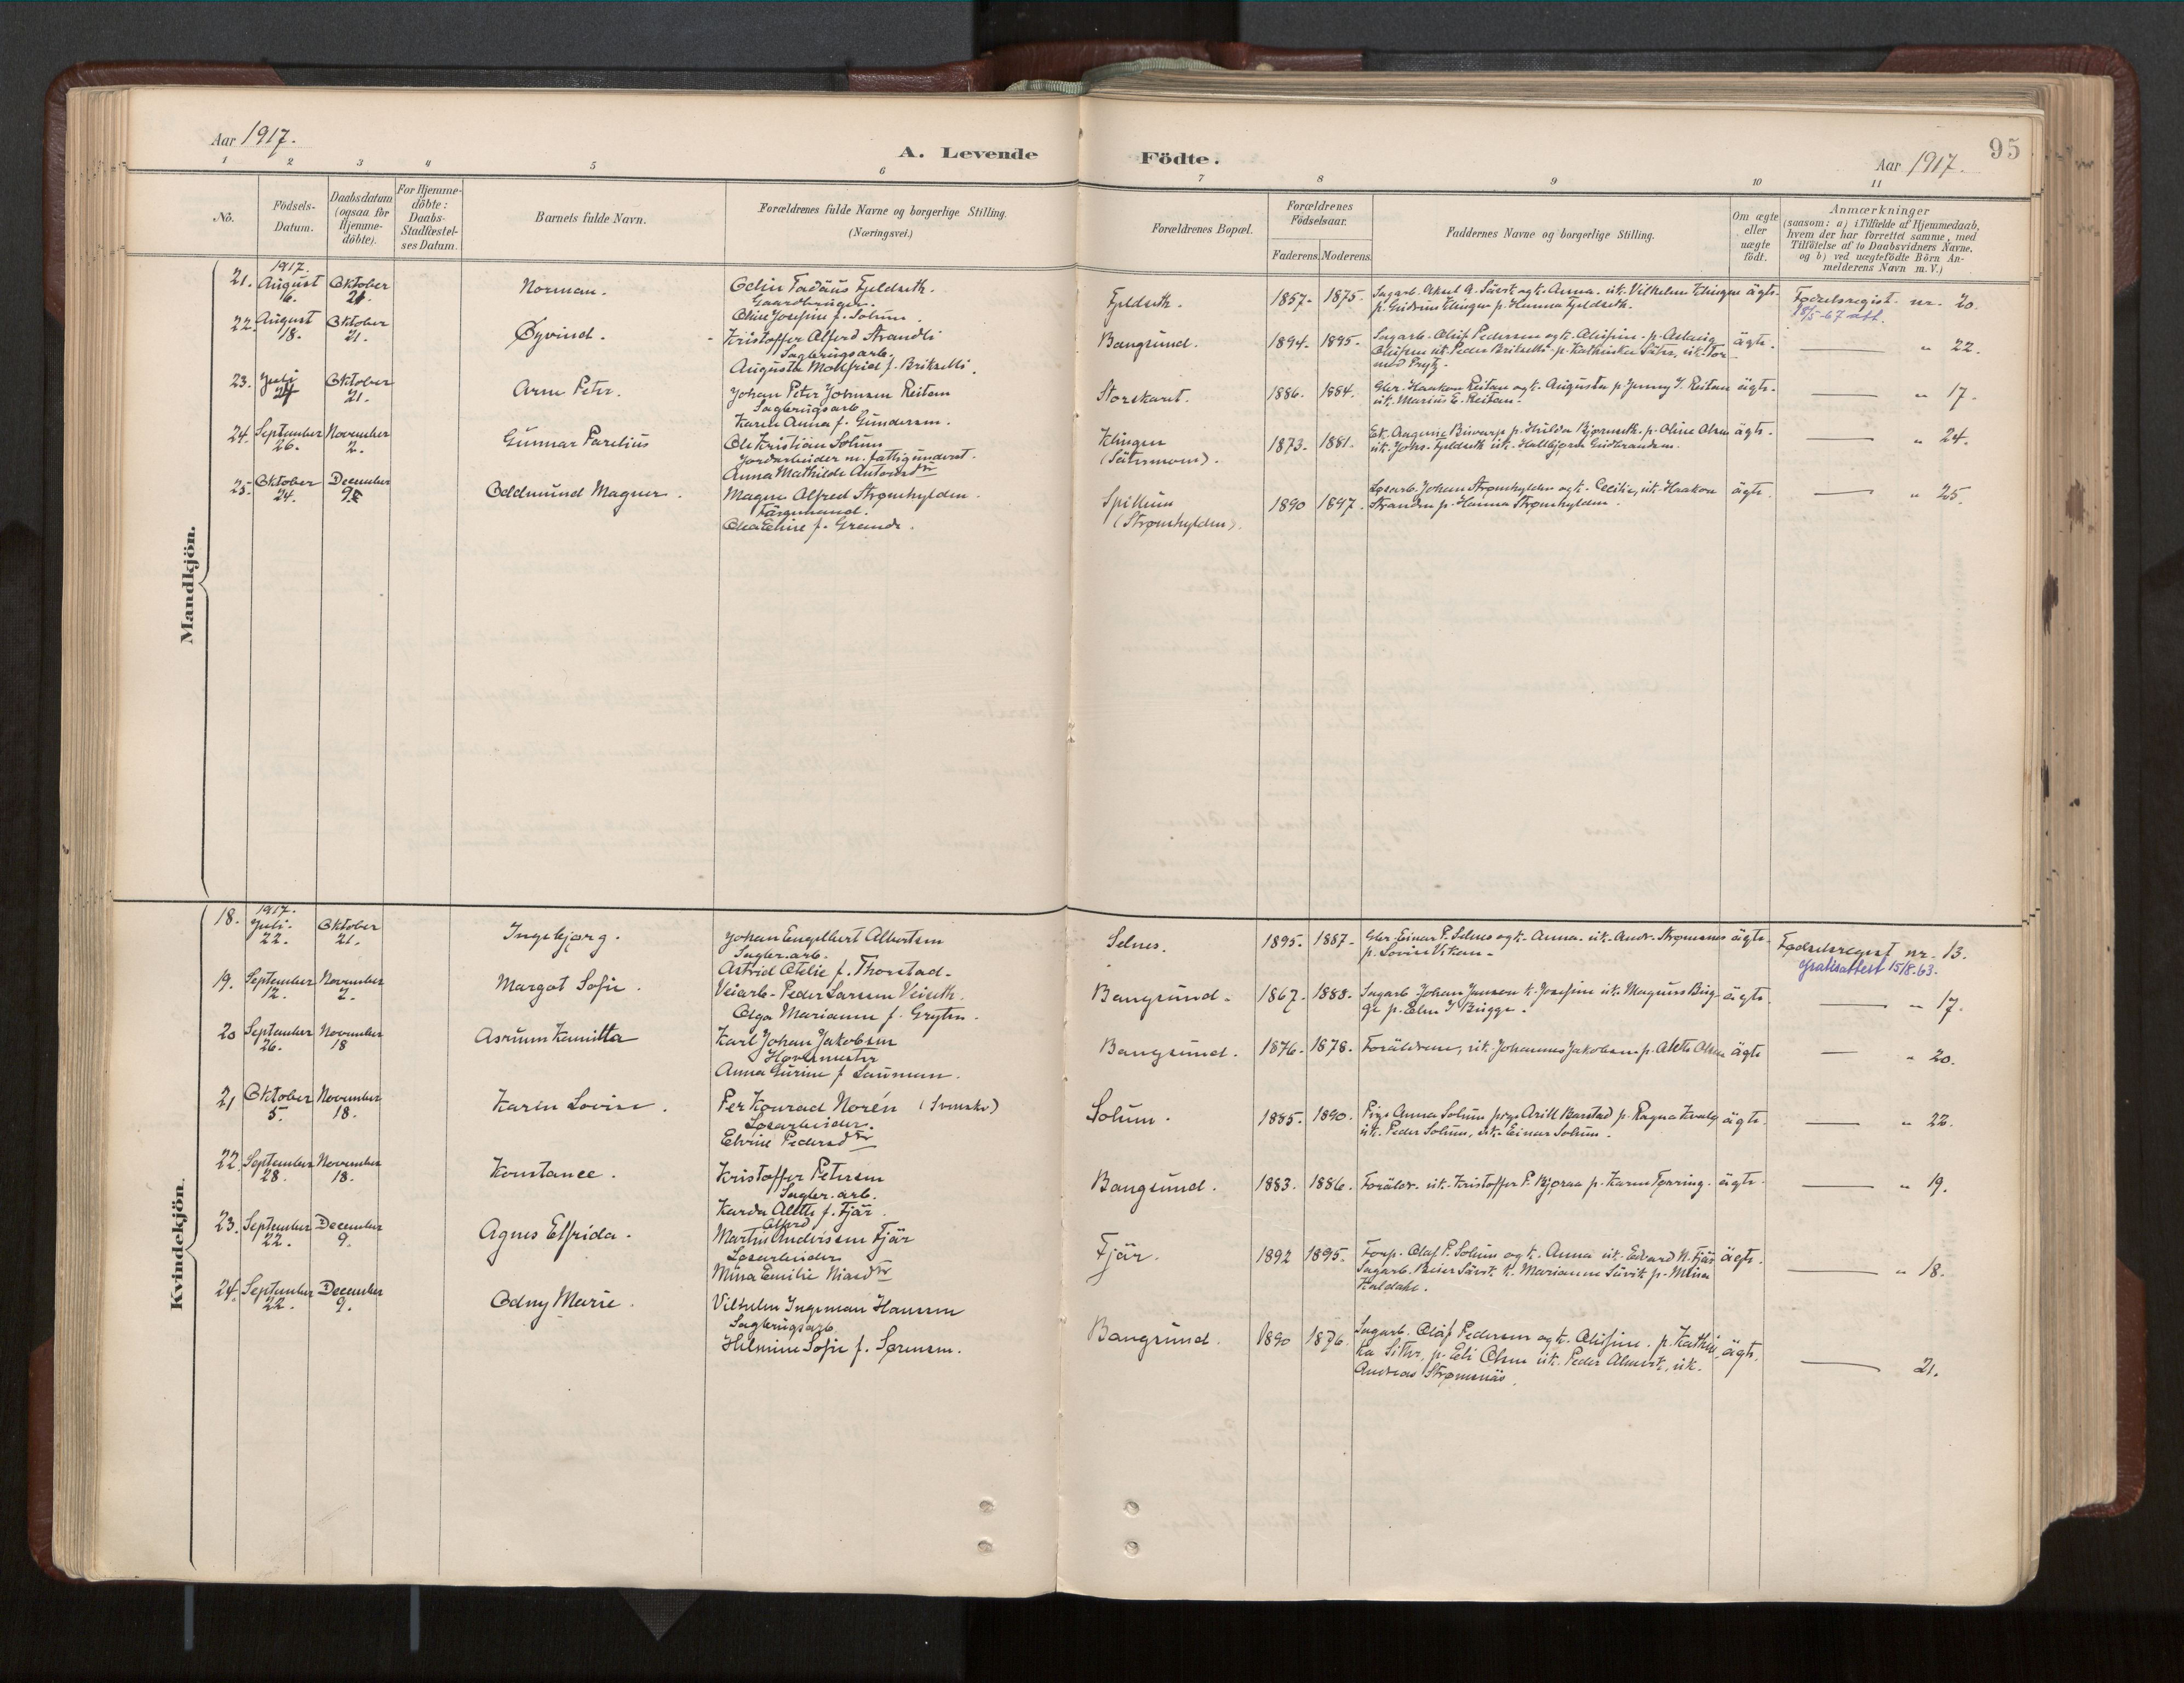 Aar 1917.
A. Levende Födte.
Aar 1917.
95
1 2 3 4 5 6 7 8 9 10 11
No.
Födsels-
Datum.
Daabsdatum
(ogsaa för
Hjemme-
döbte).
For Hjemme-
döbte:
Daabs-
Stadfæstel-
ses Datum.
Barnets fulde Navn.
Forældrenes fulde Navne og borgerlige Stilling.
(Næringsvei.)
Forældrenes Bopæl.
Forældrenes
Födselsaar.
Faderens. Moderens.
Faddernes Navne og borgerlige Stilling.
Om ægte
eller
uægte
födt.
Anmærkninger
(saasom: a) i Tilfælde af Hjemmedaab,
hvem der har forrettet samme, med
Tilföielse af to Daabsvidners Navne,
og b) ved uægtefödte Börn An-
melderens Navn m. V.)
Mandkjön.
1917.
21. August 16. Oktober 21. Norman.
Odin Tadäus Fjeldseth.
Gaardbruger.
Oline Josefine f. Solum.
Fjeldseth. 1857. 1875.
Sagarb. Aksel A. Säert og k. Anna. uk. Vilhelm Klingen
p. Gudrun Klingen p. Hanna Fjeldseth.
ägte.
Fødselsregist. nr. 20.
18/5-67 att.
22. August 18. Oktober 21. Øyvind.
Kristoffer Alfred Strandli
Sagbrugsarb.
Augusta Mollfrid f. Brikselli.
Bangsund. 1894. 1895.
Sagarb. Oluf Pedersen og k. Olufine. p. Aslaug
Olufsen uk. Peder Brikselli p. Kathinka Säter, uk. Tor-
mod Prytz.
ägte. — " 22.
23. Juli 24 Oktober 21. Arne Peter.
Johan Peter Johnsen Reitan
Sagbrugsarb.
Karen Anna f. Gundersen.
Storskaret. 1886. 1884.
Gbr. Haakon Reitan og k. Augusta p. Jenny J. Reitan
uk. Marius E. Reitan.
ägte. — " 17.
24. September 26. November 2. Gunnar Parelius
Ole Kristian Solum
Jordarbeider m. fattigunderst.
Anna Mathilde Antonsdtr
Klingen
(Sätermoen). 1873. 1881.
Ek. Augusie p. Hulda Bjørnseth. p. Oline Olsen
uk. Johs. Fjeldseth uk. Hallbjørn Gudbrandsen.
ägte. — " 24.
25. Oktober 24. December 9. Oddmund Magner.
Magne Alfred Strømhylden.
Färgemand.
Olea Elise f. Grande.
Spillum
(Strømhylden). 1890 1897.
Løsarb. Johan Strømhylden og k. Cecilie, uk. Haakon
Stranden p. Hanna Strømhylden.
ägte. — " 25.
Kvindekjön.
1917.
18. Juli. 22. Oktober 21. Ingebjørg.
Johan Engelbert Albertsen
Sagbr.arb.
Astrid Otelie f. Thorstad.
Selnes. 1895. 1887.
Gbr. Einar P. Selnes og k. Anna. uk. Andr. Strømsnes
p. Lovise Viken.
ägte.
Fødselsregist nr. 13.
Gratisattest 15/8.63.
19. September 12. November 2. Margot Sofie.
Veiarb. Peder Larsen Veiseth.
Olga Marianne f. Gryten.
Bangsund. 1867. 1888.
Sagarb. Johan Jansen k. Josefine uk. Magnus Brig-
ge p. Elen J Brigge.
ägte. — " 17.
20 September 26. November 18 Asrum Kamilla
Karl Johan Jakobsen
Havnemester
Anna Gurine f. Laumann.
Bangsund. 1876. 1878.
Foräldrene, uk. Johannes Jakobsen p. Alette Olsen
ägte — " 20.
21 Oktober 5. November 18. Karin Lovise.
Per Konrad Norén (Svenske)
Løsarbeider.
Elvine Pedersdtr
Solum. 1885. 1890.
Pige Anna Solum pige Arill Barstad p. Ragna Kvalø
uk. Peder Solum, uk. Einar Solum.
ägte. — " 22.
22. September 28. November 18. Konstance.
Kristoffer Petersen
Sagbr.arb.
Karda Alette f. Fjär.
Bangsund. 1883. 1886.
Foräldr. uk. Kristoffer P. Bjøraa p. Karen Tønring.
ägte. — " 19.
23. September 22. December 9. Agnes Elfrida.
Alfred
Martin Andersen Fjär
Løsarbeider
Mina Emilie Niasdtr
Fjär. 1892 1895.
Forp. Olaf P. Solum og k. Anna uk. Edvard N. Fjär
Sagarb. Beier Särst. k. Marianne Särik p. Mina
Kaldahl.
ägte. — " 18.
24. September 22. December 9. Odny Marie.
Vilhelm Ingeman Hansen
Sagbrugsarb.
Helmine Sofie f. Sørensen.
Bangsund. 1890 1876.
Sagarb. Oluf Pedersen og k. Olufine. p. Kathin-
ka Säter, p. Eli Olsen uk. Peder Almvik, uk.
Andreas Strømsnäs.
ägte. — 21.